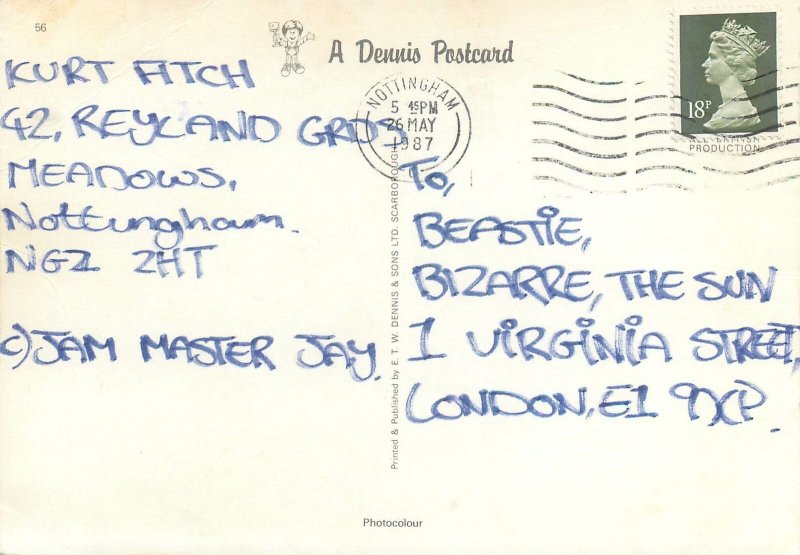 56
A Dennis Postcard
KURT FITCH
42, REYLAND GRO
MEADOWS,
Nottingham.
NG2 2HT
c) JAM MASTER JAY.
NOTTINGHAM
5 45PM
26 MAY
1987
18P
PRODUCTION
To,
BEASTIE,
BIZARRE, THE SUN
1 VIRGINIA STREET,
LONDON, E1 9XP.
Printed & Published by E. T. W. DENNIS & SONS LTD. SCARBOROUGH
Photocolour